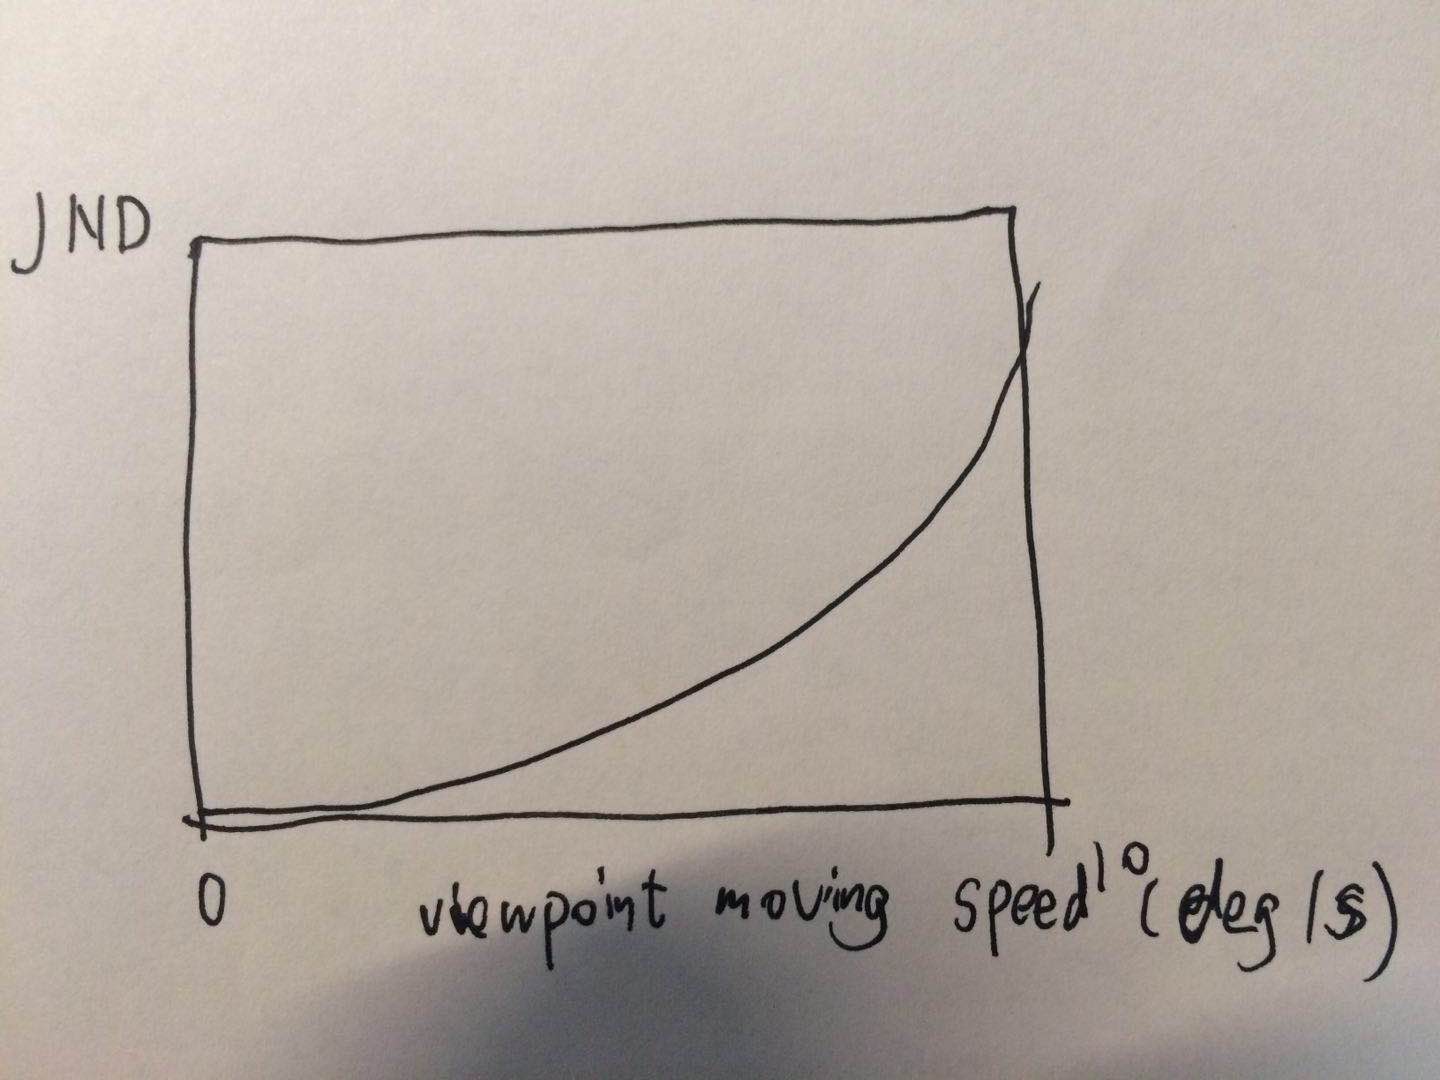 JND
0 viewpoint moving speed 10 (deg/s)